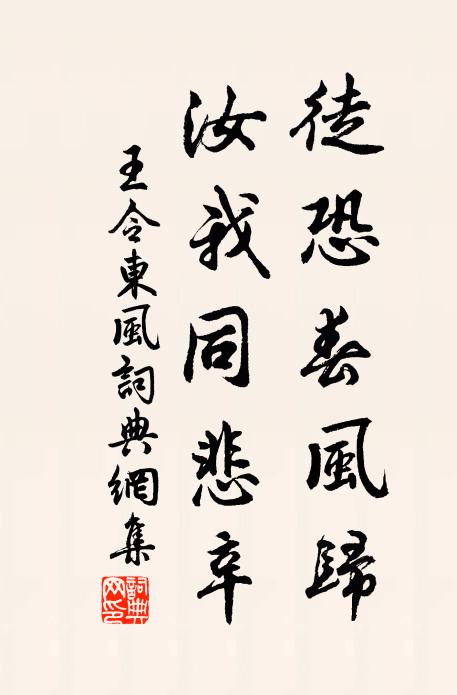 徒恐春風歸
汝我同悲辛
王令東風詞典網集
詞典网印